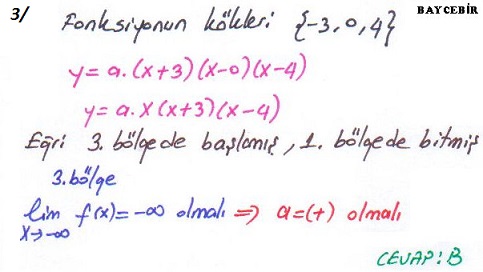 3/ Fonksiyonun kökleri {-3, 0, 4} BAYCEBİR
y = a.(x+3)(x-0)(x-4)
y = a.x(x+3)(x-4)
Eğri 3. bölgede başlamış, 1. bölgede bitmiş
3. bölge
lim f(x) = -∞ olmalı ⇒ a=(+) olmalı
x→-∞
CEVAP: B